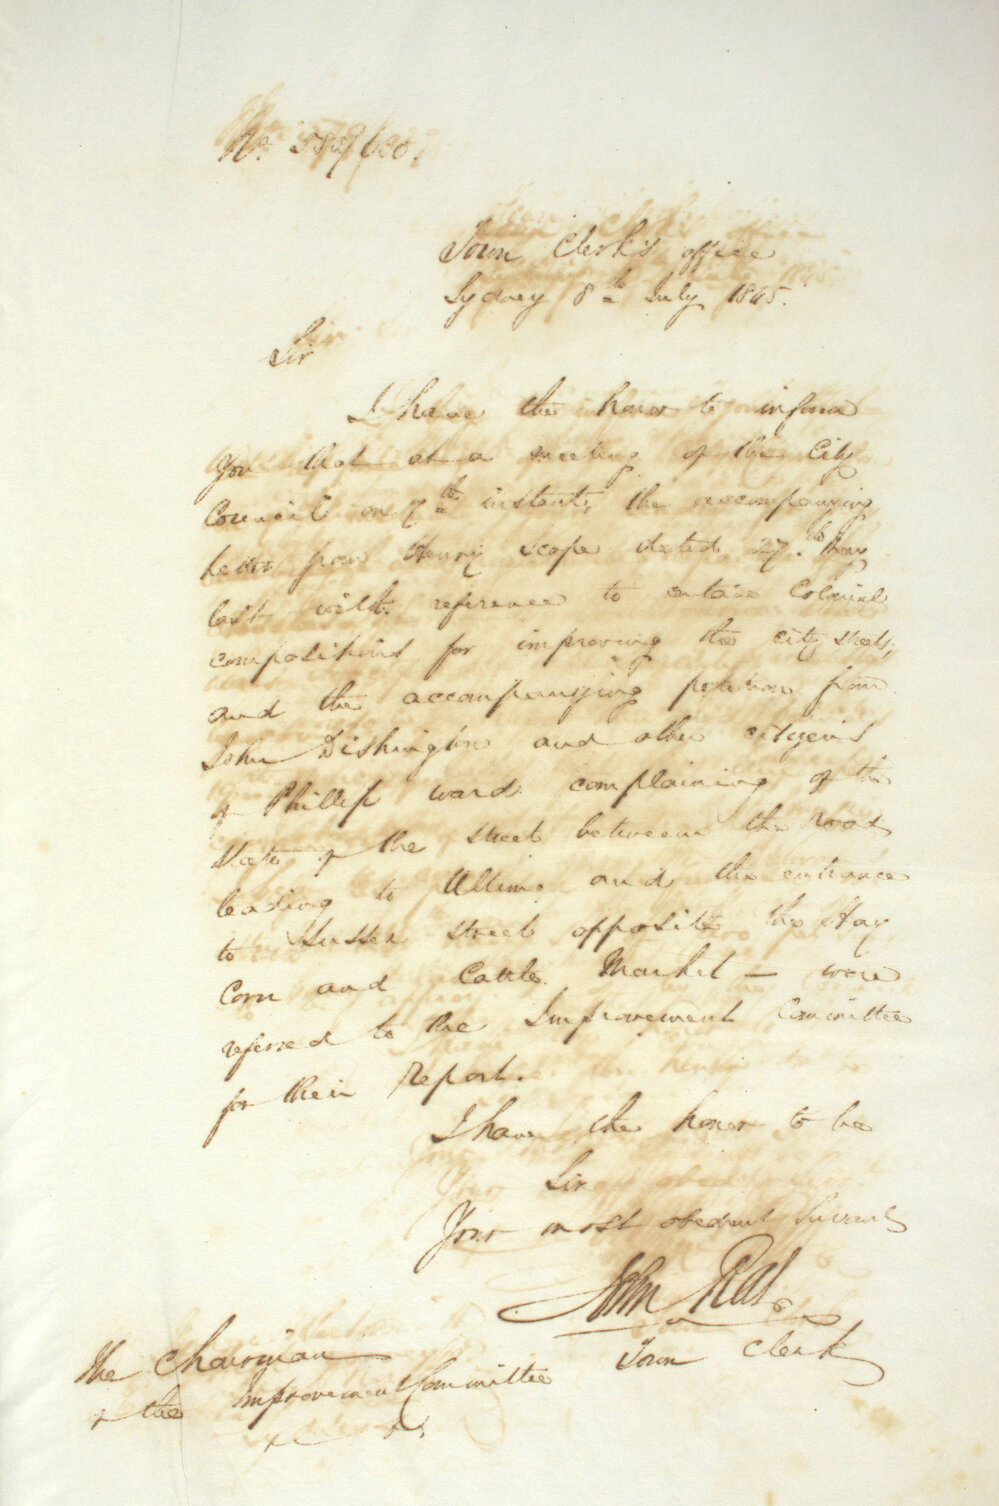 No.
Town Clerk's office
Sydney 8th July 1845.
Sir
I have the honor to inform
you that at a meeting of the City
Council on 7th instant, the accompanying
letter from Henry Scope dated 27th May
last with reference to certain Colonial
compositions for improving the city streets,
and the accompanying petition from
John Dishington and other citizens
of Phillip ward complaining of the
state of the street between the road
leading to Ultimo and the entrance
to Sussex street opposite the Hay
Corn and Cattle Market — were
referred to the Improvement Committee
for their Report.
I have the honor to be
Sir
Your most obedient Servant
John Rae
Town Clerk
The Chairman
of the Improvement Committee